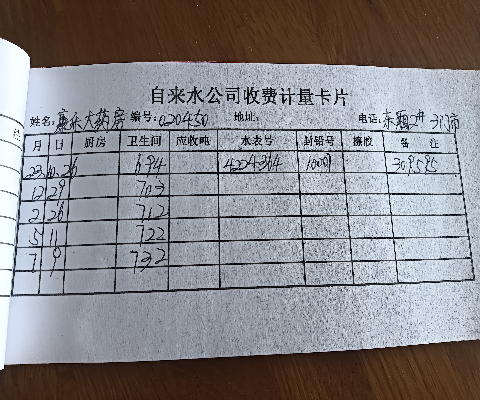 自来水公司收费计量卡片
姓名: 康乐大药房 编号: 020450 地址: 电话: 东 2# 3门市
月 日 厨房 卫生间 应收吨 水表号 封铅号 接收 备 注
23 10.26 694 4224364 10001 309595
12 29 703
2 26 712
5 11 722
7 9 732